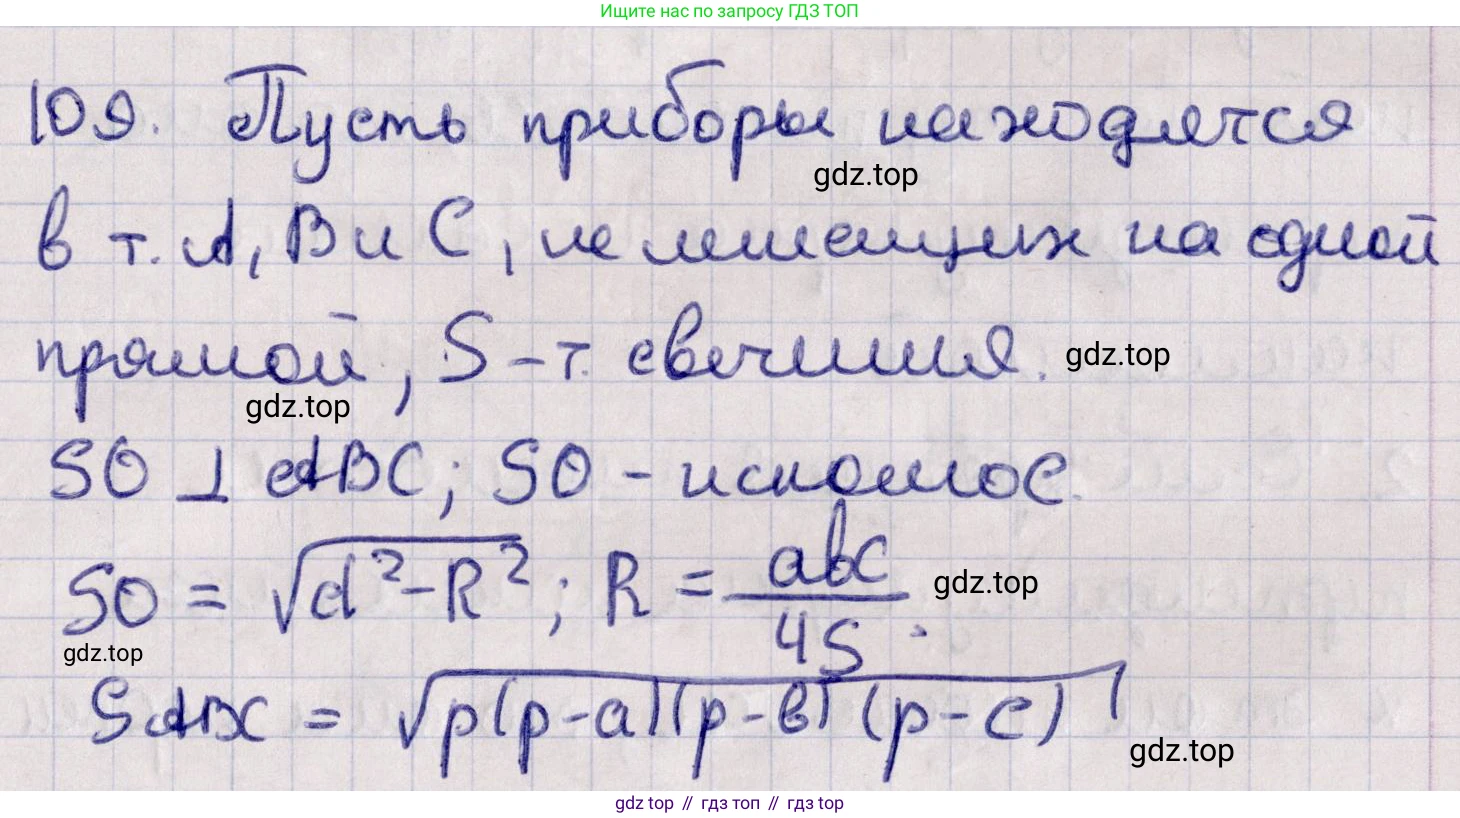 Ищите нас по запросу ГДЗ ТОП
109. Пусть приборы находятся
gdz.top
в т. A, B и C, не лежащих на одной
прямой, S – т. свечения.
gdz.top
gdz.top
SO ⊥ ABC; SO – искомое.
SO = √(d² – R²); R = abc / 4S.
gdz.top
gdz.top
SABC = √(p(p-a)(p-b)(p-c))
gdz.top
gdz top // гдз топ // гдз top